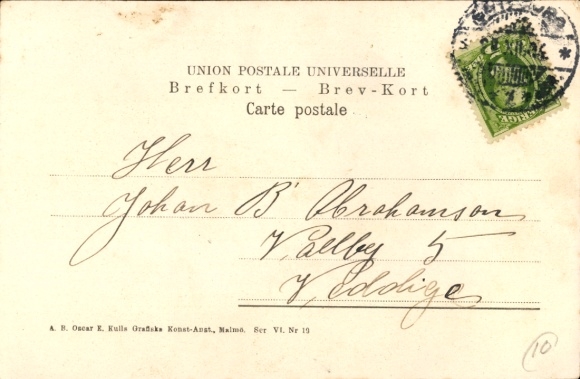 UNION POSTALE UNIVERSELLE
Brefkort — Brev-Kort
Carte postale
SVERIGE
Herr
Johan B Abrahamson
Vallby 5
Veddige
A. B. Oscar E. Kulls Grafiska Konst-Anst., Malmö. Ser VI. Nr 19
10